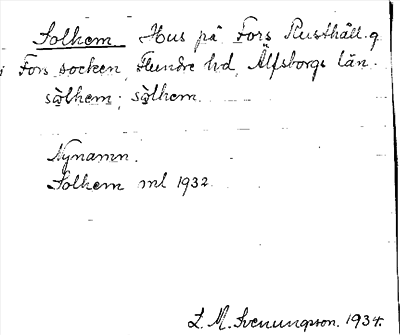 Solhem Hus på Fors Rusthåll. g
i Fors socken, Flundre hd, Älfsborgs län.
sòlhem; sòlhem.
Nynamn.
Solhem ml 1932.
L. M. Svenungsson. 1934.